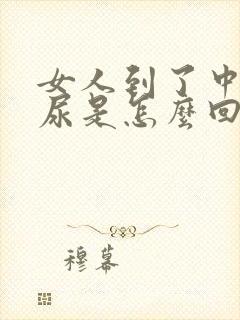 女人到了中
尿是怎麼回
穆幕